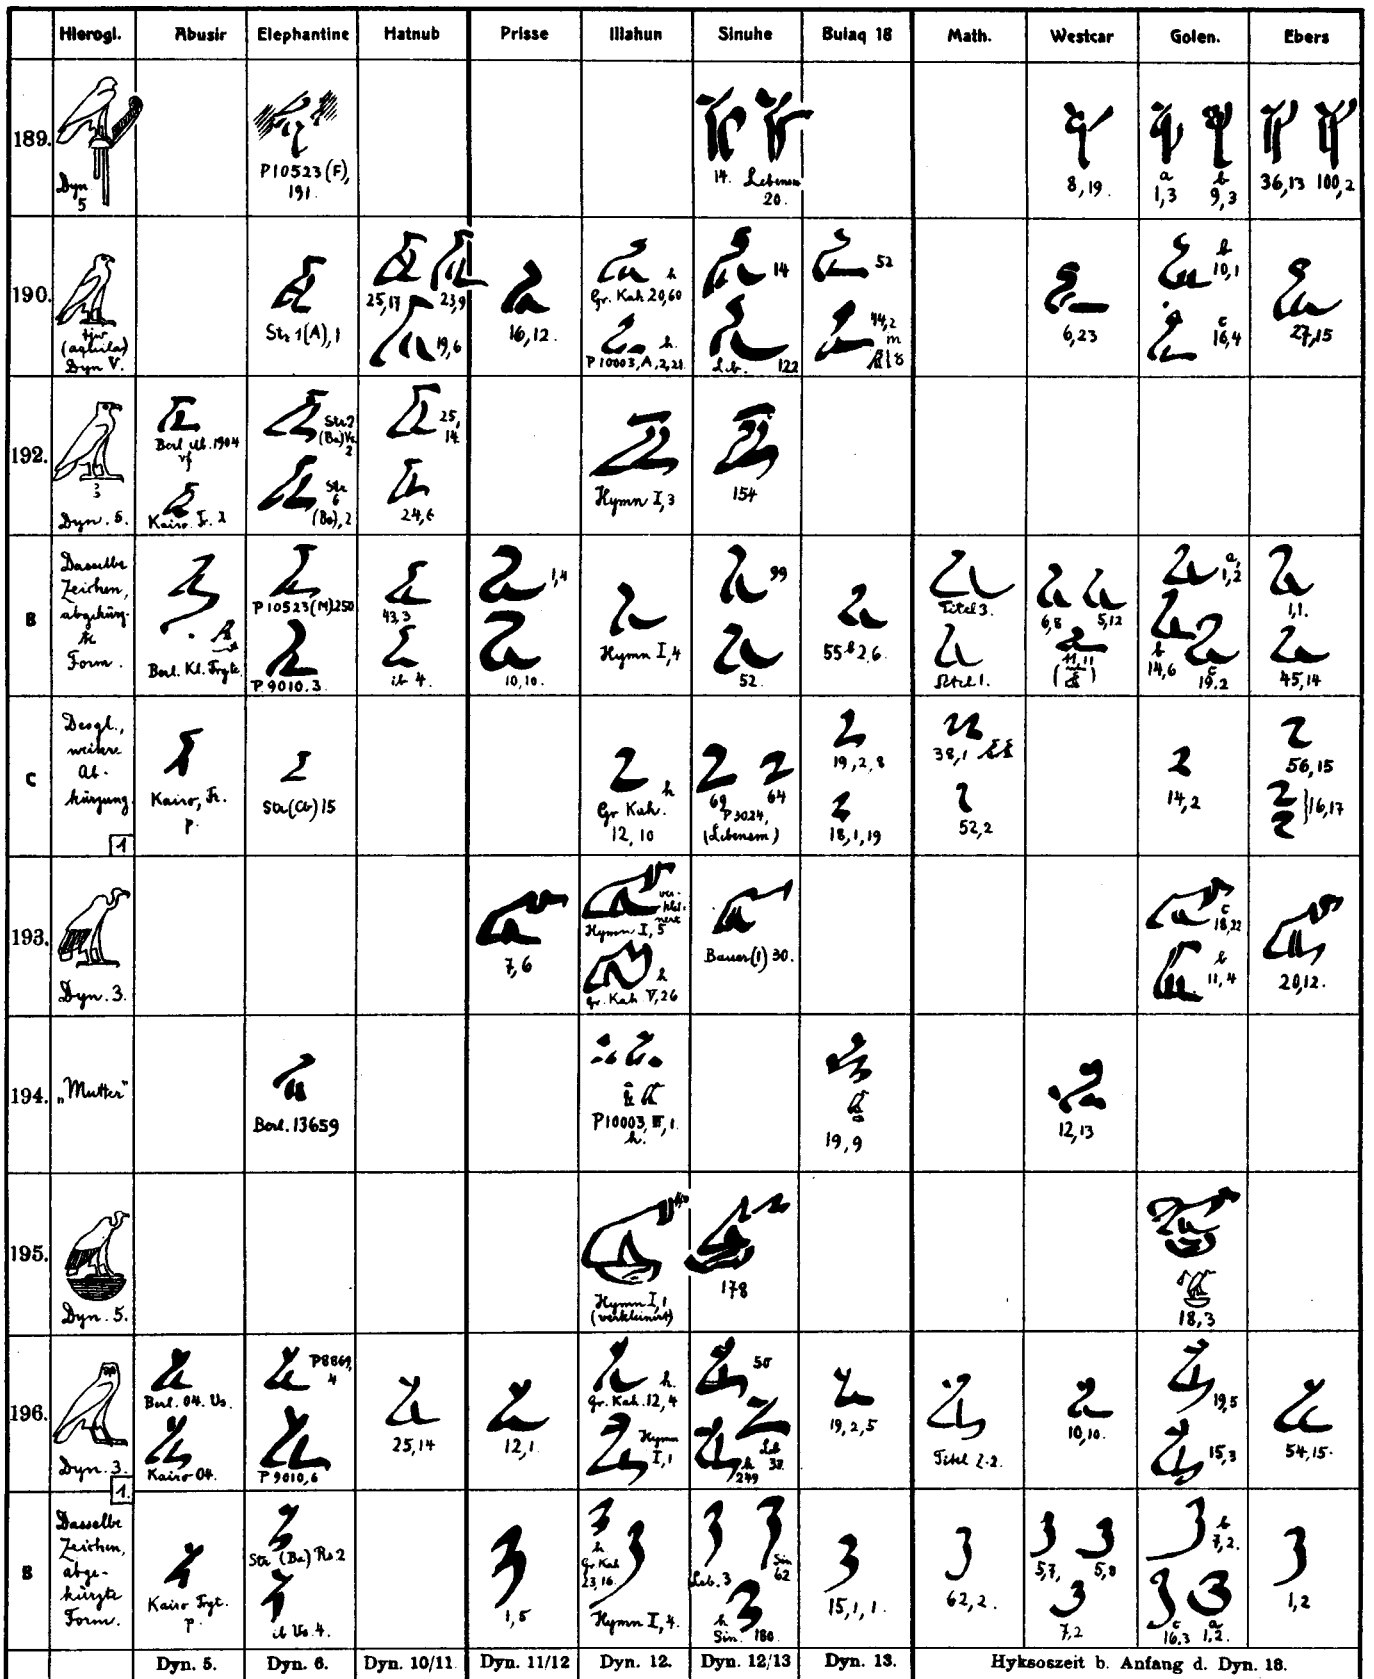 Hierogl. Abusir Elephantine Hatnub Prisse Illahun Sinuhe Bulaq 18 Math. Westcar Golen. Ebers
189.
Dyn
5
P10523(F),
191.
14. Lebensm
20.
8,19.
a
1,3
b
9,3
36,13 100,2
190.
tjw
(aquila)
Dyn V.
Str 1(A),1
25,17 23,9
19,6
16,12.
h
Gr. Kah. 20,60
h.
P10003,A.,2,21
14
Leb. 122
52
44,2
m
6,23
b
10,1
c
16,4
27,15
192.
Dyn. 5.
Berl. 1904
Kairo. Fr. 2
Str 2
(Ba)Vs
2
Str
6
(Ba),2
25,
14
24,6
Hymn I,3
154
B
Dasselbe
Zeichen,
abgekürz-
te
Form.
Berl. Kl. Frgte.
P10523(M)250
P.9010.3.
43,3
ib 4.
1,4
10,10.
Hymn I,4
99
52.
55 2,6.
Titel 3.
Titel 1.
6,8 5,12
11,11
a,
1,2
b
14,6
c
19,2
1,1.
45,14
C
Desgl.,
weitere
Ab-
kürzung
1
Kairo, Fr.
p.
Str(Cb)15
h
Gr Kah.
12,10
69 64
P3024,
(Lebensm)
19,2,8
18,1,19
38,1
52,2
14,2
56,15
16,17
193.
Dyn. 3.
7,6
ver-
klei-
nert
Hymn I,5
h
Gr. Kah. V,26
Bauer(1) 30.
c
18,22
b
11,4
20,12.
194.
„Mutter"
Berl. 13659
P10003, III,1.
h.
19,9
12,13
195.
Dyn. 5.
Hymn I,1
(verkleinert)
178
18,3
196.
Dyn. 3.
1.
Berl. 04. Vs.
Kairo 04.
P8869,
4
P 9010,6
25,14
12,1.
h.
Gr. Kah. 12,4
Hymn
I,1
50
Leb
h
249
19,2,5
Titel
10,10.
19,5
15,3
54,15.
B
Dasselbe
Zeichen,
abge-
kürzte
Form.
Kairo Frgt.
p.
Str (Ba) Rs 2
ib Vs. 4.
1,5
h
Gr. Kah
23,16.
Hymn I,4.
Leb. 3
Sin
62
h
Sin. 180.
15,1,1.
62,2.
5,7, 5,8
7,2
b
7,2.
c
16,3
a
1,2.
1,2
Dyn. 5. Dyn. 6. Dyn. 10/11 Dyn. 11/12 Dyn. 12. Dyn. 12/13 Dyn. 13. Hyksoszeit b. Anfang d. Dyn. 18.